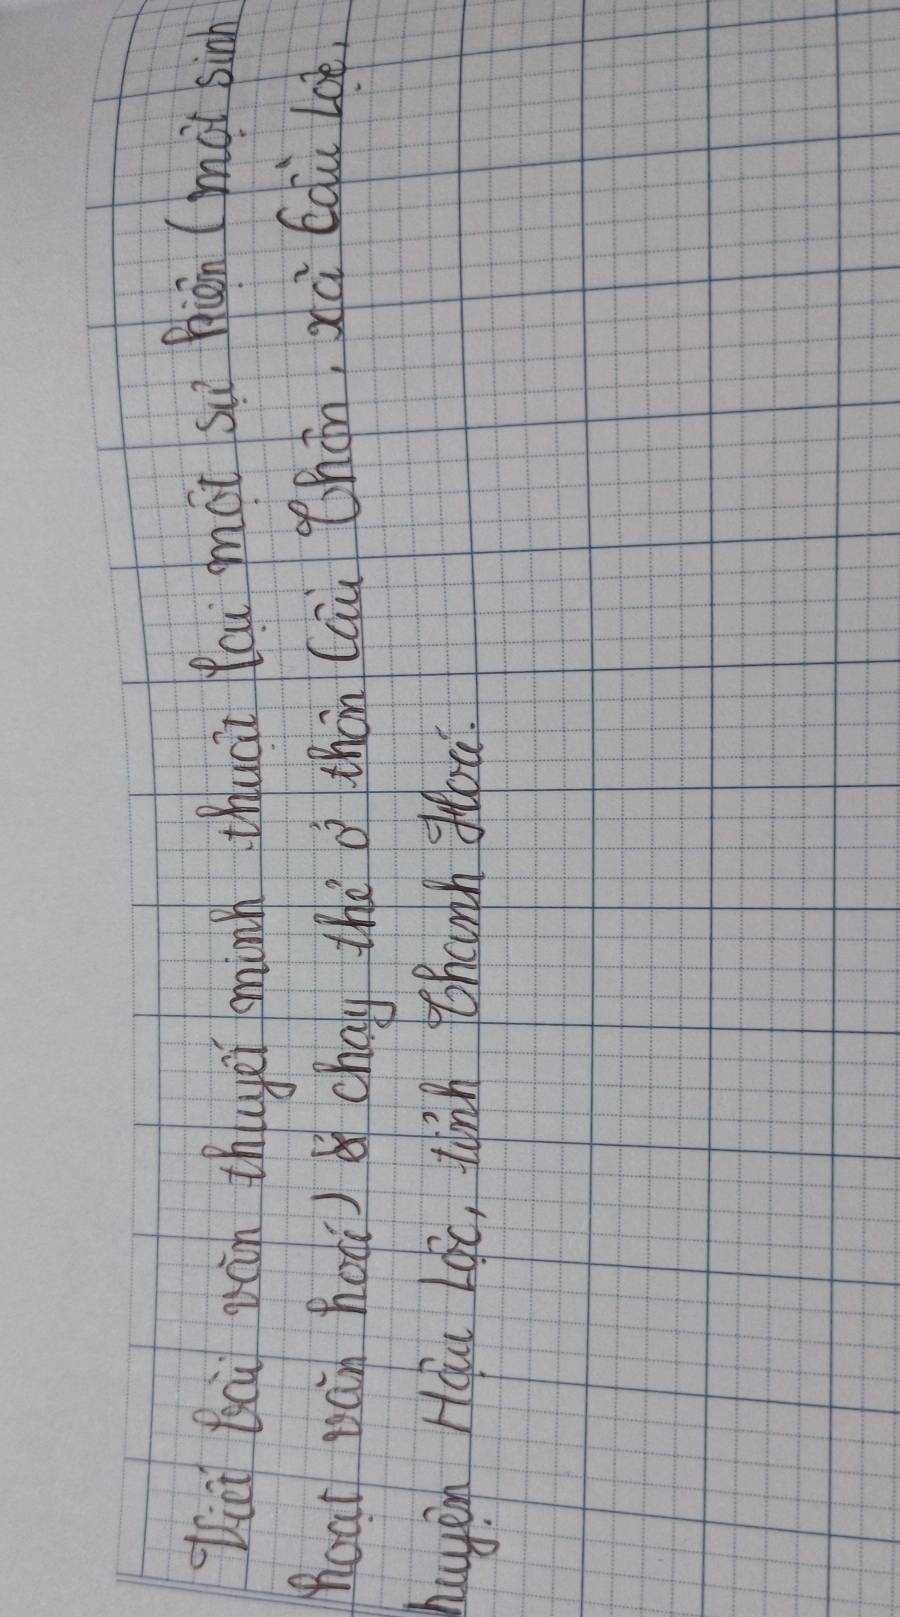 Viết bài văn thuyết minh thuật lại một sự hiện (một sinh
hoạt văn hoá) chạy thẻ ở thôn Cầu Thôn, xã Cầu Lộc,
huyện Hậu Lộc, tỉnh Thanh Hoá.